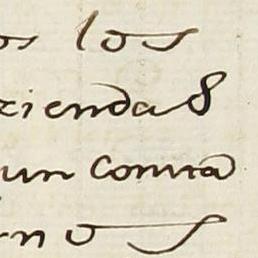 os los
ziendas
un contra
rno s